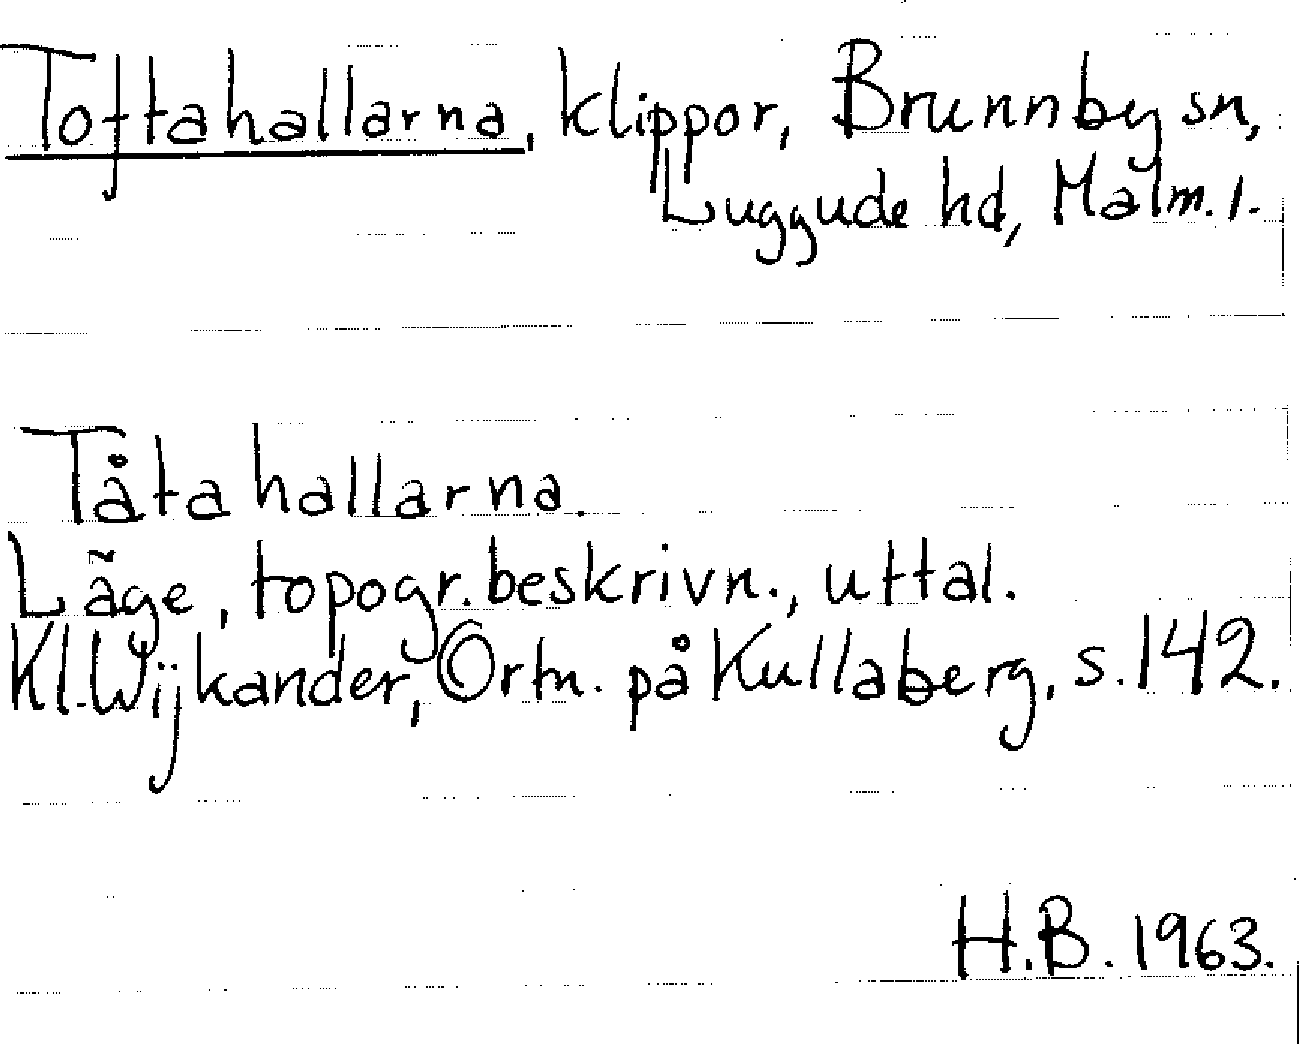 Toftahallarna, klippor, Brunnby sn,
Luggude hd, Malm. l.
Tåtahallarna.
Läge, topogr. beskrivn., uttal.
Kl. Wijkander, Ortn. på Kullaberg, s. 142.
H.B. 1963.